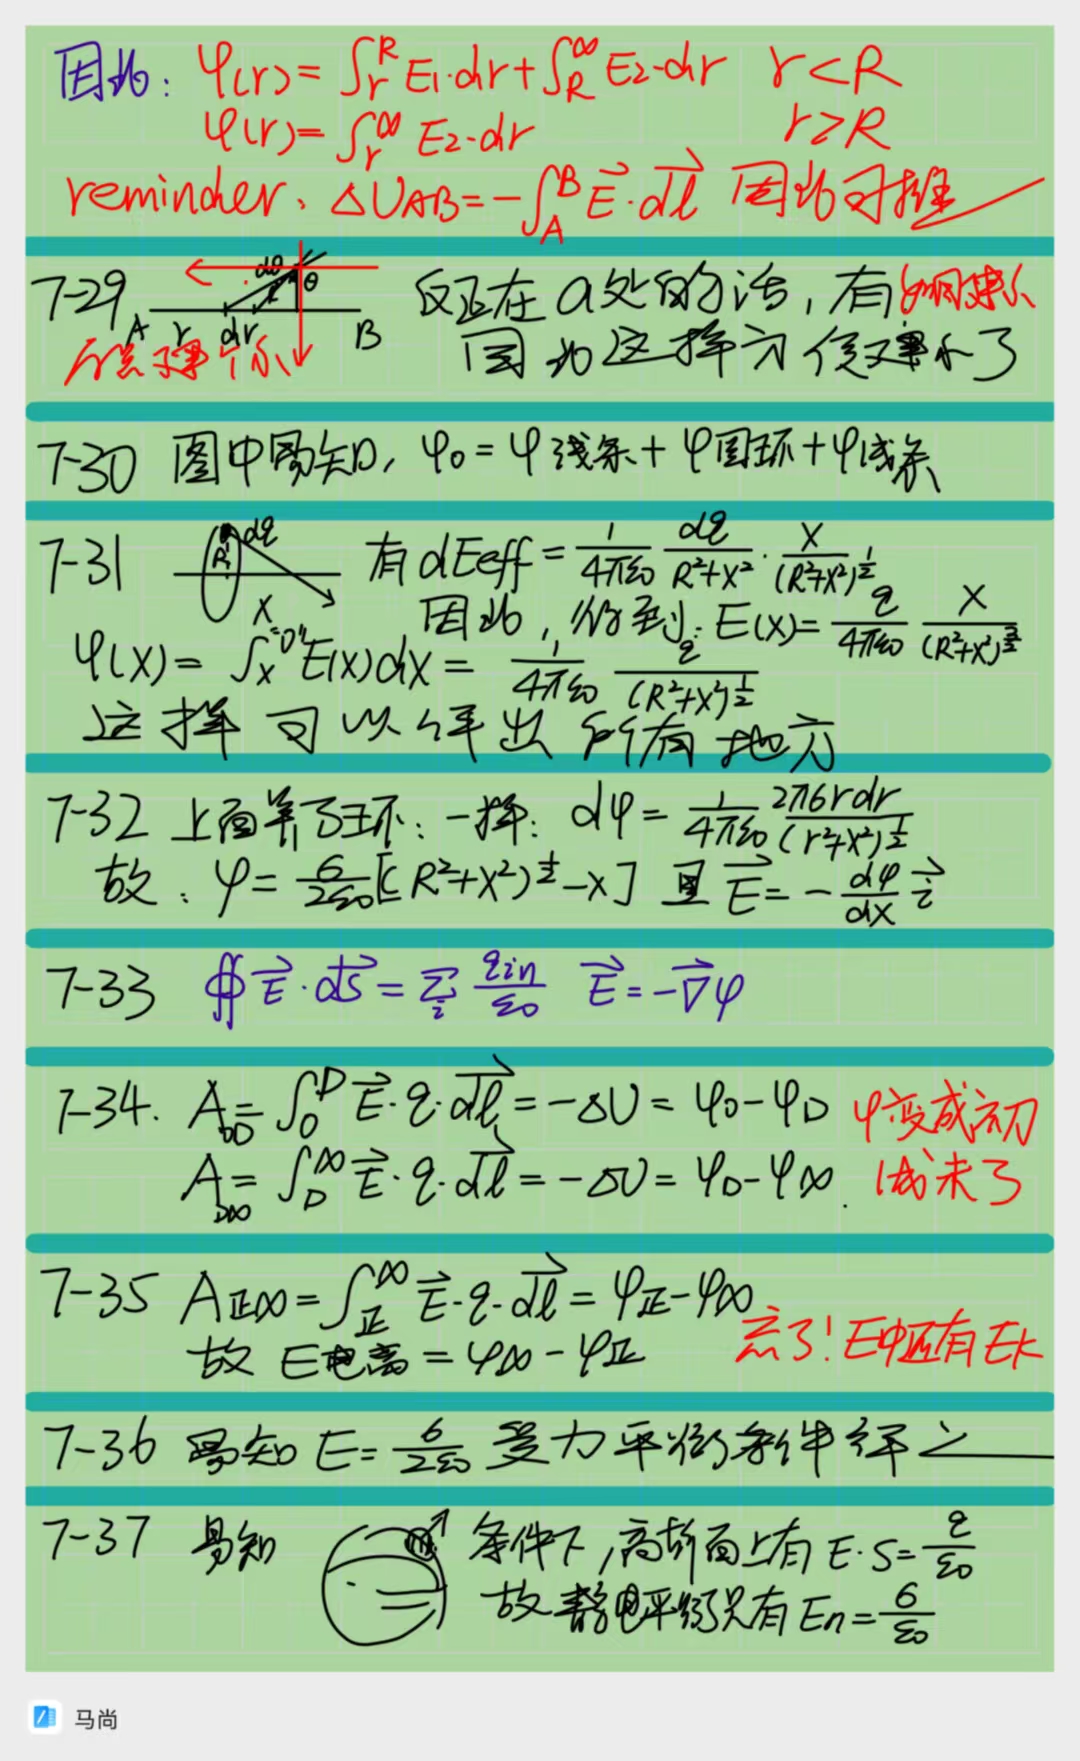 因此: φ(r)=∫_r^R E1·dr+∫_R^∞ E2·dr r<R
φ(r)=∫_r^∞ E2·dr r≥R
reminder、△U_AB=-∫_A^B E⃗·dl⃗ 因此可推
7-29 A r dr B dθ θ 反正在a处的话,有
因此这样方便又
7-30 图中易知, φ0=φ线条+φ圆环+φ线条
7-31 R dq x 有dEeff=1/4πε0 dq/R²+x² · x/(R²+x²)^½
因此,得到: E(x)=q/4πε0 x/(R²+x²)^3/2
φ(x)=∫_x^"0" E(x)dx=1/4πε0 q/(R²+x²)^½
这样可以得出所有地方
7-32 上面算了环:一样: dφ=1/4πε0 2πσrdr/(r²+x²)^½
故: φ=σ/2ε0[(R²+x²)^½-x] 且E⃗=-dφ/dx i⃗
7-33 ∯E⃗·dS⃗=Σ_i qin/ε0 E⃗=-∇⃗φ
7-34. A_OD=∫_O^D E⃗·q·dl⃗=-△U=φ0-φD φ变成初
A_D∞=∫_D^∞ E⃗·q·dl⃗=-△U=φD-φ∞. 减末了
7-35 A正∞=∫_正^∞ E⃗·q·dl⃗=φ正-φ∞
故 E电离=φ∞-φ正 忘了!E中还有Ek
7-36 易知E=σ/2ε0 受力平衡条件得之
7-37 易知 条件下,高斯面上有E·S=q/ε0
故静电平衡只有En=σ/ε0
马尚